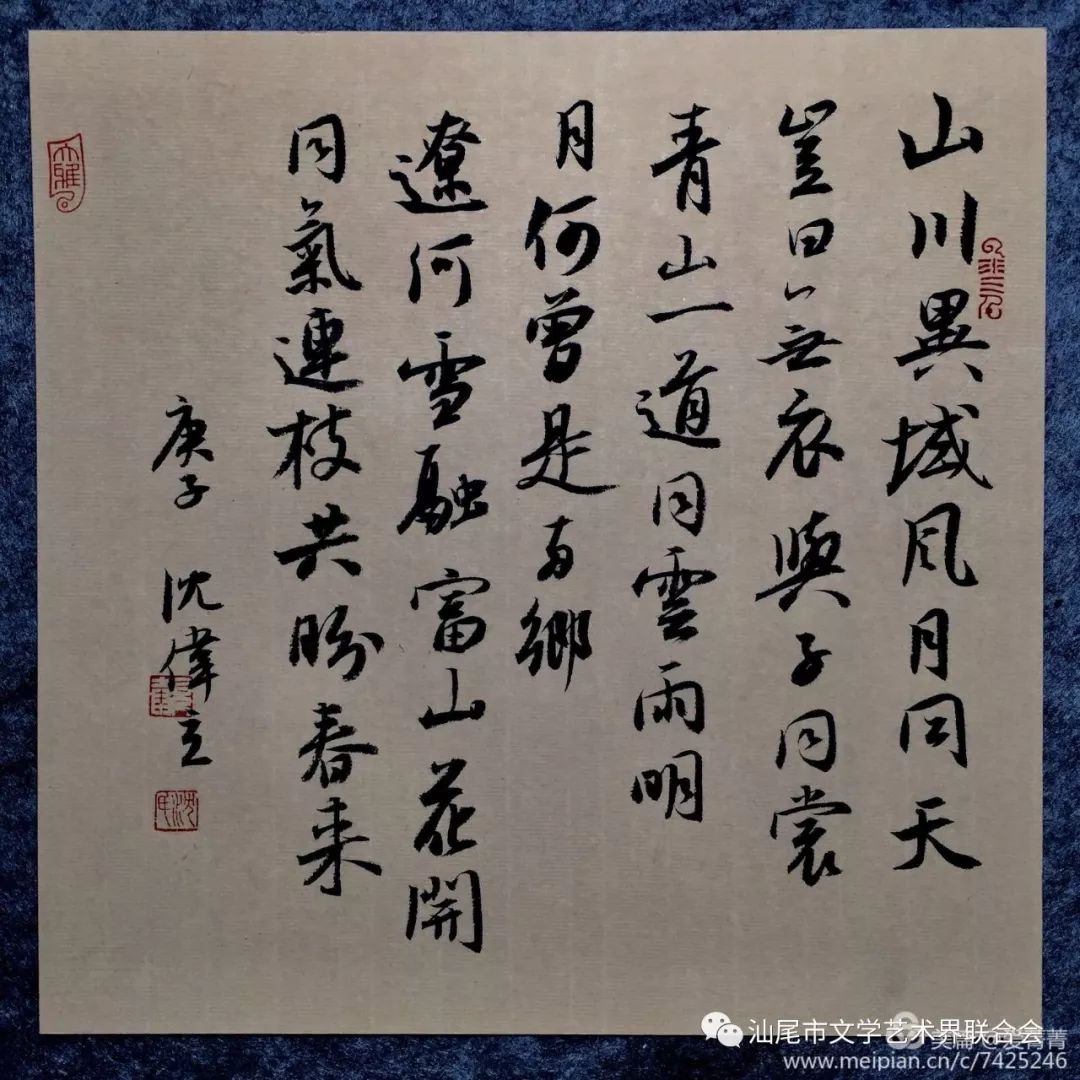 山川異域風月同天
豈曰無衣與子同裳
青山一道同雲雨明
月何曾是兩鄉
遼河雪融富山花開
同氣連枝共盼春来
庚子 沈偉立
沈氏
汕尾市文学艺术界联合会
美篇@爱菁菁
www.meipian.cn/c/7425246